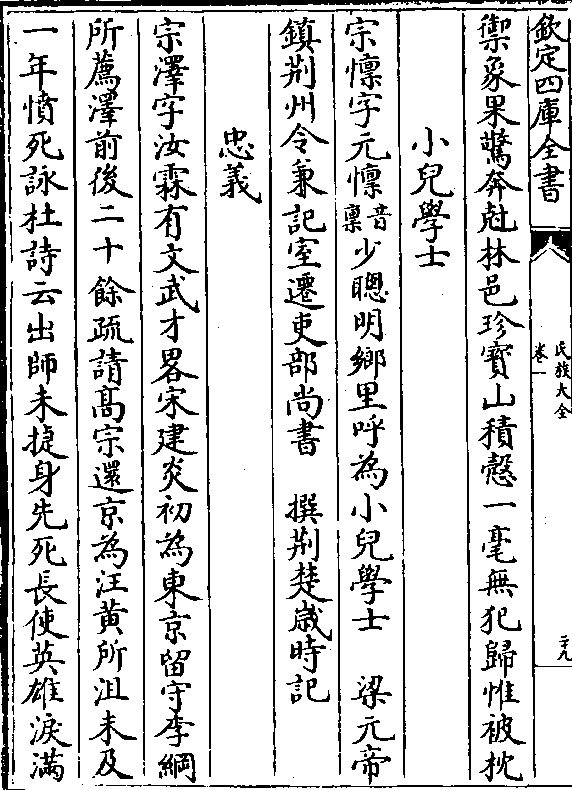 欽定四庫全書
氏族大全
卷一
二十九
禦象果驚奔尅林邑珍寳山積慤一毫無犯歸惟被枕
小兒學士
宗懍字元懍音稟少聰明鄉里呼為小兒學士　梁元帝
鎮荆州令兼記室遷吏部尚書　撰荆楚嵗時記
忠義
宗澤字汝霖有文武才畧宋建炎初為東京留守李綱
所薦澤前後二十餘疏請髙宗還京為汪黄所沮未及
一年憤死詠杜詩云出師未捷身先死長使英雄淚滿